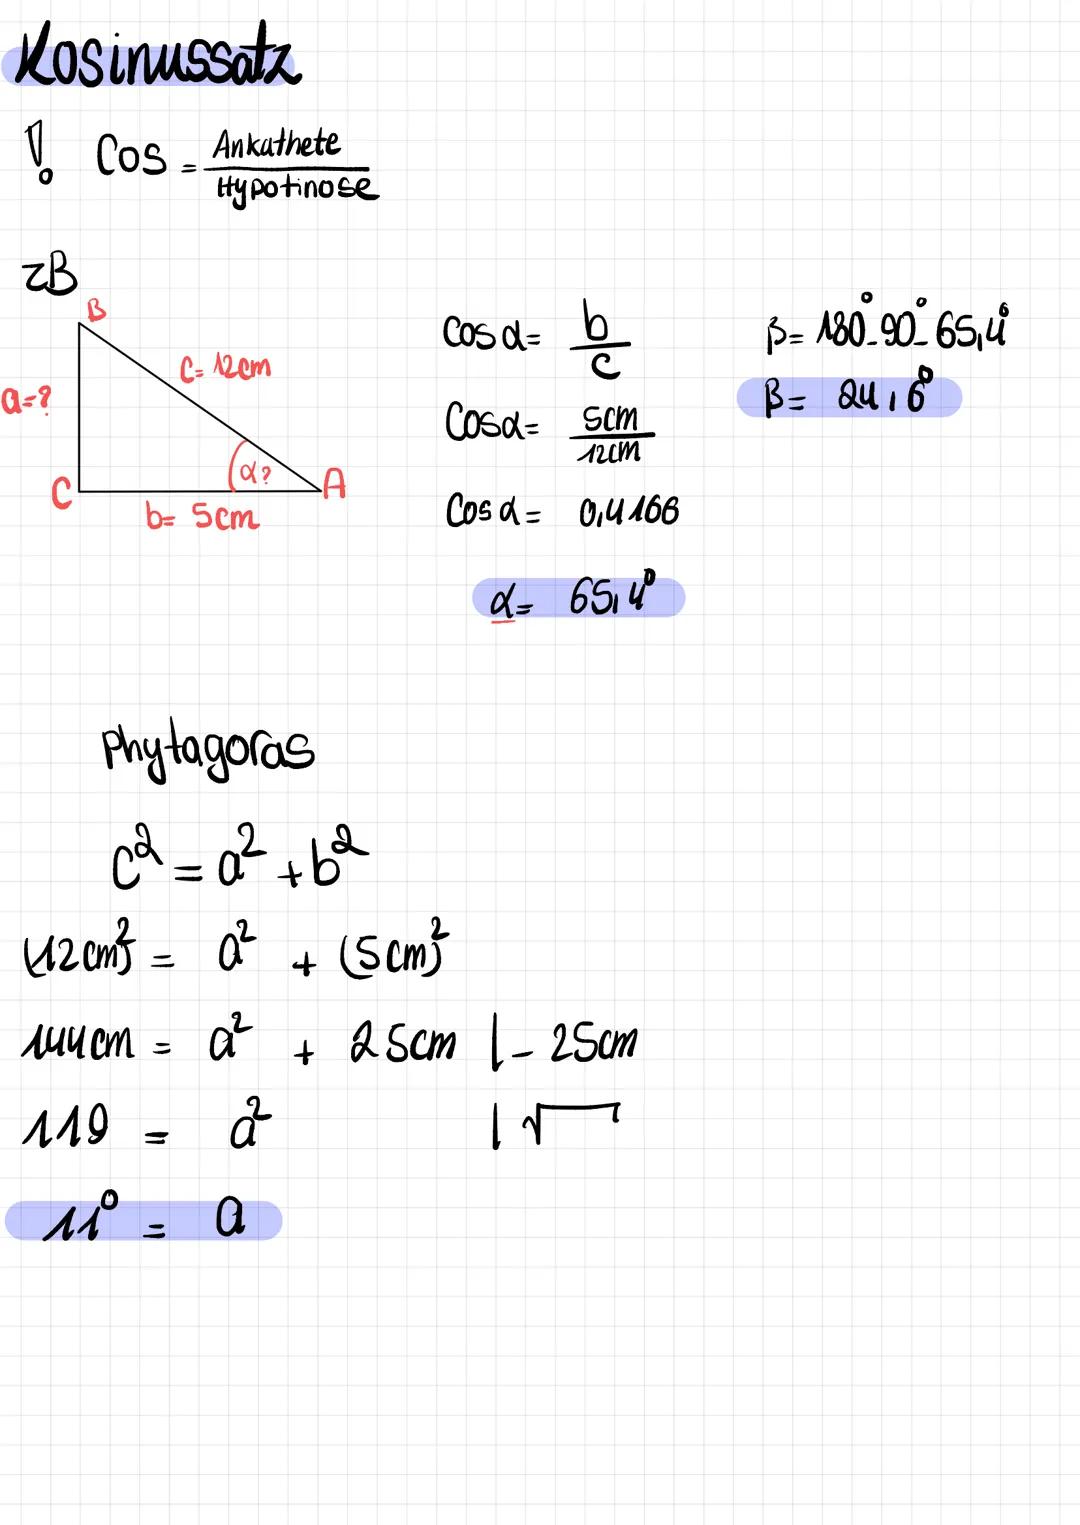 Kosinussatz
! Cos = Ankathete / Hypotinose
zB
B
c= 12cm
a=?
α?
C
A
b= 5cm
Cos α= b/c
Cosα= 5cm/12cm
Cos α= 0,4166
α= 65,4°
β= 180°-90°-65,4°
β= 24,6°
Phytagoras
c² = a² + b²
(12cm)² = a² + (5cm)²
144cm = a² + 25cm | - 25cm
119 = a² | √
11° = a